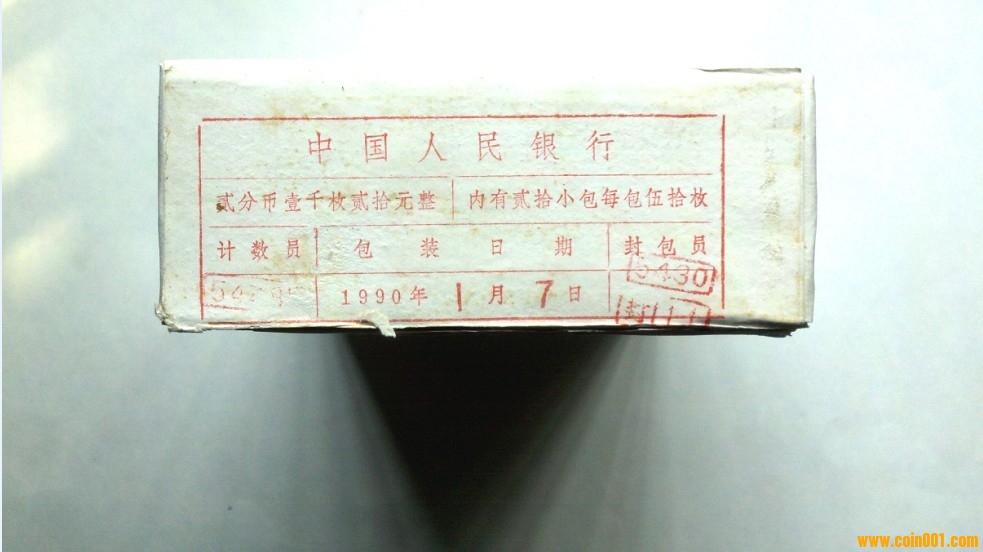 中国人民银行
贰分币壹千枚贰拾元整 内有贰拾小包每包伍拾枚
计数员 包装日期 封包员
1990年1月7日
www.coin001.com